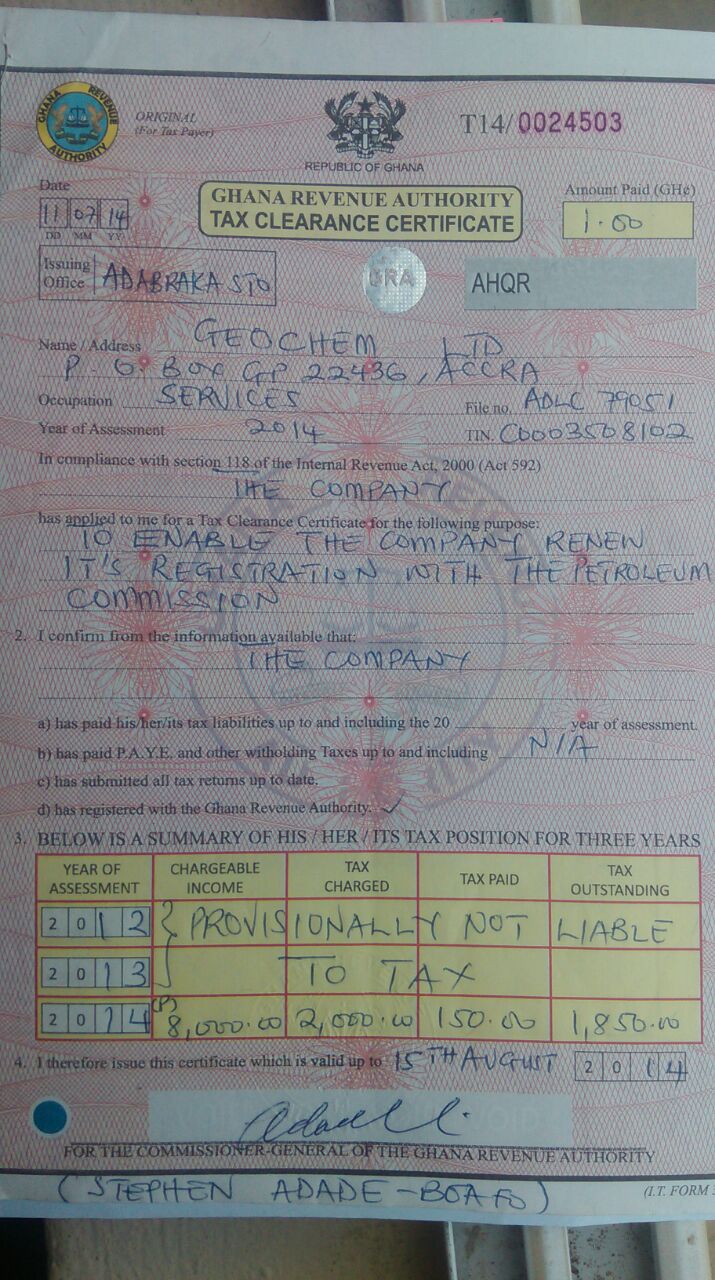 GHANA REVENUE AUTHORITY
ORIGINAL
(For Tax Payer)
REPUBLIC OF GHANA
T14/0024503
Date
11 07 14
DD MM YY
GHANA REVENUE AUTHORITY
TAX CLEARANCE CERTIFICATE
Amount Paid (GH¢)
1.00
Issuing Office ADABRAKA STO
GRA
AHQR
Name / Address GEOCHEM LTD
P. O. Box GP 22436, ACCRA
Occupation SERVICES File no. ADLC 79051
Year of Assessment 2014 TIN. C0003508102
In compliance with section 118 of the Internal Revenue Act, 2000 (Act 592)
THE COMPANY
has applied to me for a Tax Clearance Certificate for the following purpose:
TO ENABLE THE COMPANY RENEW
IT'S REGISTRATION WITH THE PETROLEUM
COMMISSION
2. I confirm from the information available that:
THE COMPANY
a) has paid his/her/its tax liabilities up to and including the 20 year of assessment.
b) has paid P.A.Y.E. and other witholding Taxes up to and including N/A
c) has submitted all tax returns up to date.
d) has registered with the Ghana Revenue Authority. ✓
3. BELOW IS A SUMMARY OF HIS / HER / ITS TAX POSITION FOR THREE YEARS
YEAR OF ASSESSMENT CHARGEABLE INCOME TAX CHARGED TAX PAID TAX OUTSTANDING
2012 PROVISIONALLY NOT LIABLE
2013 TO TAX
2014 (P) 8,000.00 2,000.00 150.00 1,850.00
4. I therefore issue this certificate which is valid up to 15TH AUGUST 2014
FOR THE COMMISSIONER-GENERAL OF THE GHANA REVENUE AUTHORITY
(STEPHEN ADADE-BOAFO)
(I.T. FORM